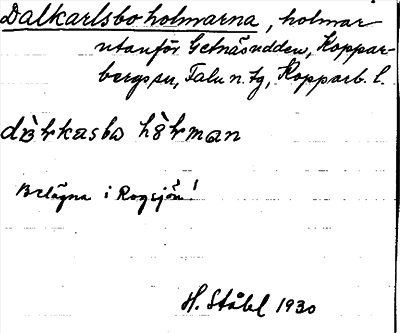 Dalkarlsboholmarna, holmar
utanför Getnäsudden, Koppar-
bergs sn, Falu n. tg, Kopparb. l.
dàrkasbo hòrman
Belägna i Rogsjön!
H. Ståhl 1930